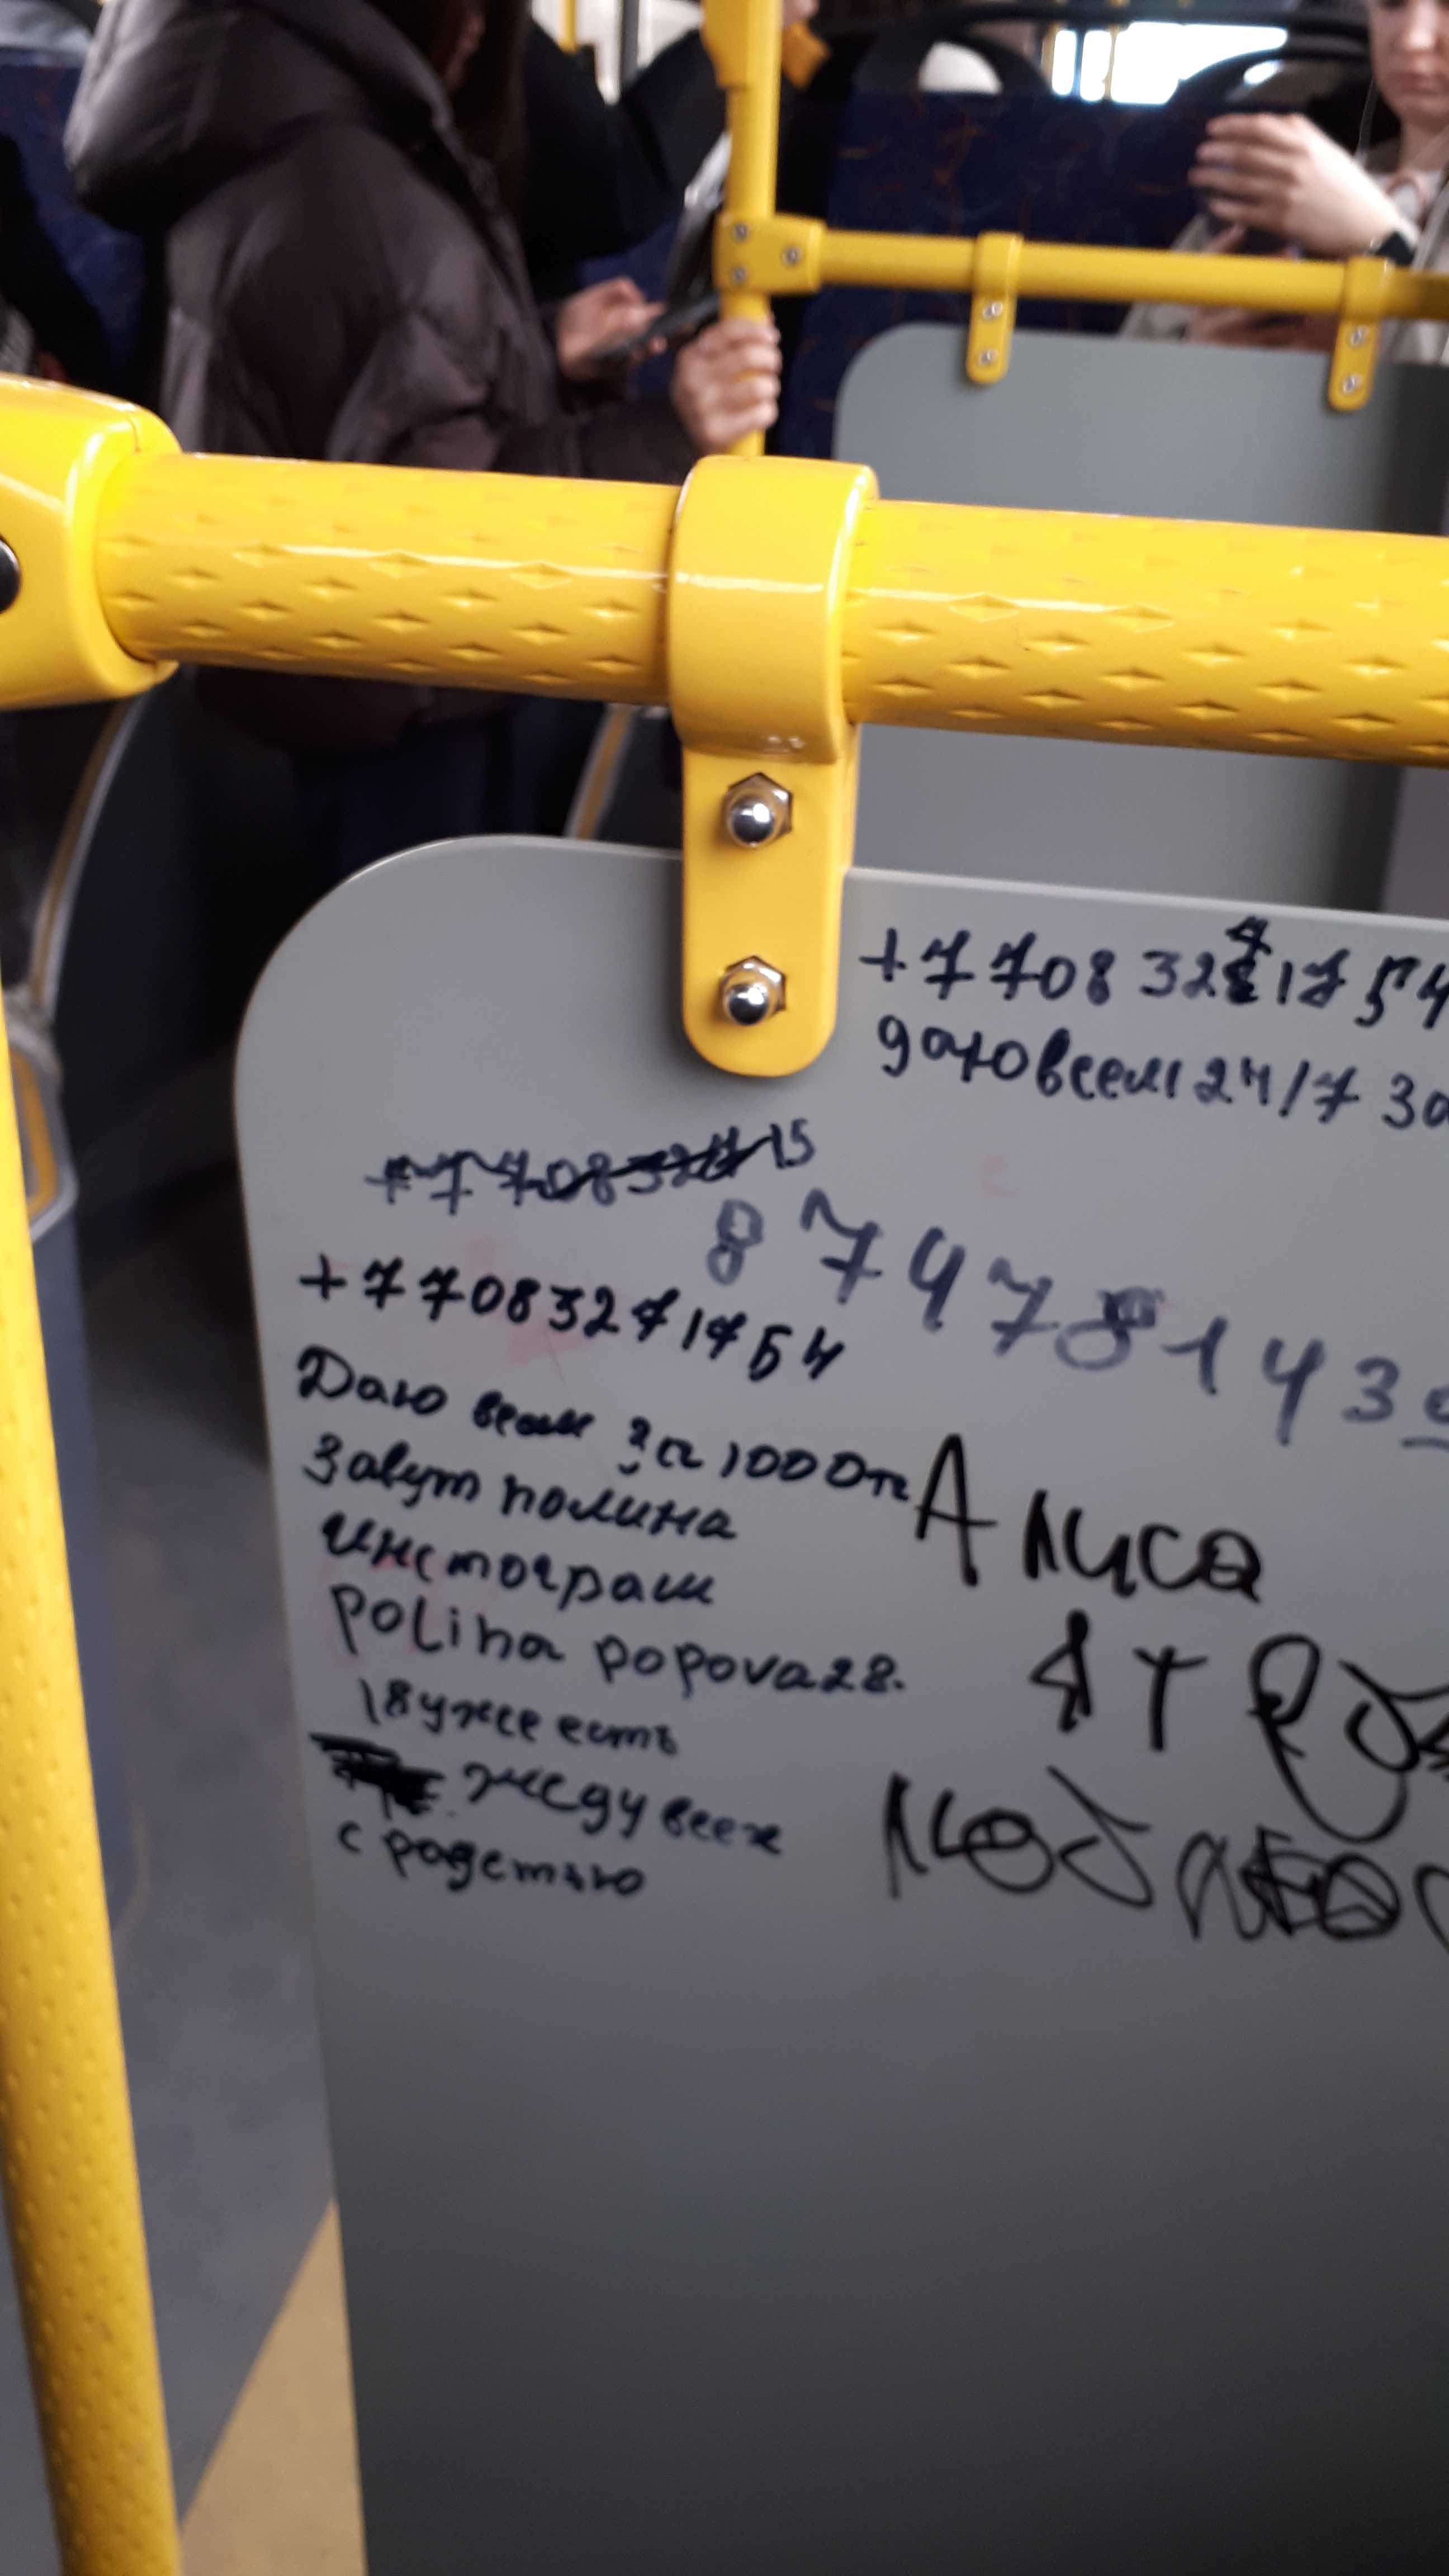 +7 708 32 17 54
даю всем 24/7 за
+7 708 324 15
8 747 81 43
+7 708 327 17 54
Даю всем за 1000 тг
Завут полина
инстограм
polina popova28.
18 уже есть
жеду веех
с радстью
Алиса